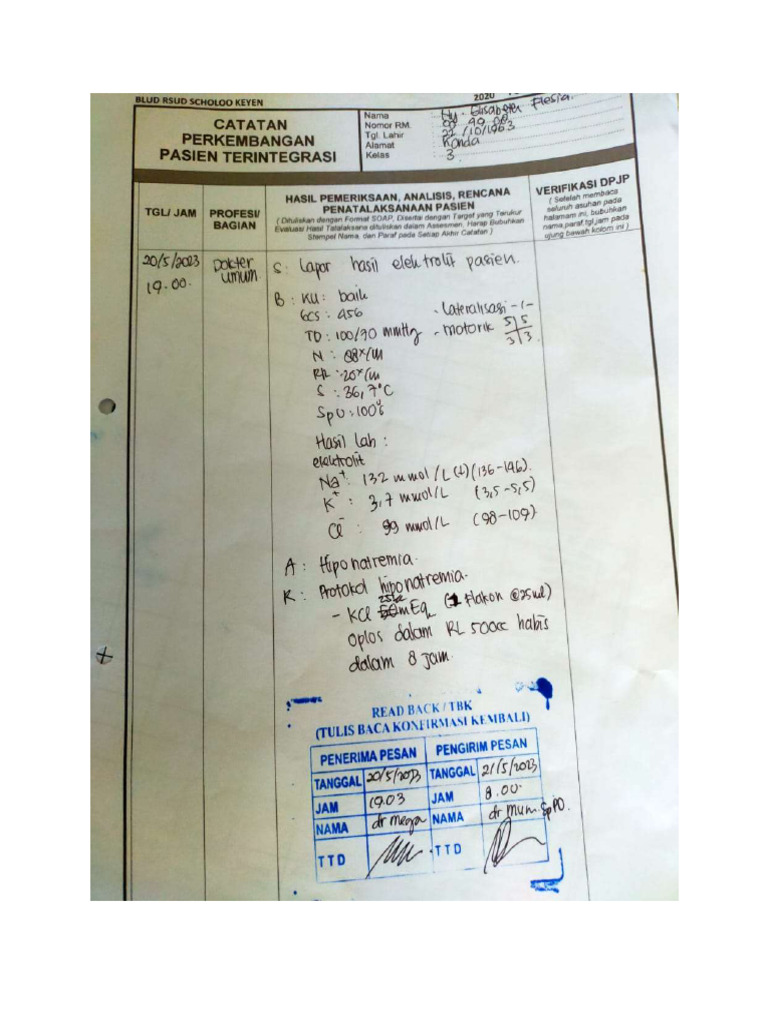 BLUD RSUD SCHOLOO KEYEN
2020
CATATAN
PERKEMBANGAN
PASIEN TERINTEGRASI
Nama : Ny. Elisabeth Flesia
Nomor RM. :
Tgl. Lahir : 22/10/1963
Alamat : Konda
Kelas : 3
TGL/ JAM
PROFESI/
BAGIAN
HASIL PEMERIKSAAN, ANALISIS, RENCANA
PENATALAKSANAAN PASIEN
( Dituliskan dengan Format SOAP, Disertai dengan Target yang Terukur
Evaluasi Hasil Tatalaksana dituliskan dalam Assesmen, Harap Bubuhkan
Stempel Nama, dan Paraf pada Setiap Akhir Catatan )
VERIFIKASI DPJP
( Setelah membaca
seluruh asuhan pada
halamam ini, bubuhkan
nama,paraf,tgl,jam pada
ujung bawah kolom ini )
20/5/2023
19.00.
Dokter
umum
S : Lapor hasil elektrolit pasien.
B : KU : baik
GCS : 456 - Lateralisasi -/-
TD : 100/70 mmHg - motorik 5 5
3 3
N : 88x/m
RR : 20x/m
S : 36,7°C
SpO : 100%
Hasil lab :
elektrolit
Na+ : 132 mmol/L (↓) (136-146).
K+ : 3,7 mmol/L (3,5-5,5)
Cl- : 99 mmol/L (98-109)
A : Hiponatremia.
R : Protokol hiponatremia.
- KCl 25 mEq (1 flakon @25ml)
oplos dalam RL 500cc habis
dalam 8 jam.
READ BACK / TBK
(TULIS BACA KONFIRMASI KEMBALI)
PENERIMA PESAN PENGIRIM PESAN
TANGGAL 20/5/2023 TANGGAL 21/5/2023
JAM 19.03 JAM 8.00.
NAMA dr mega NAMA dr Mum SpPD.
TTD TTD